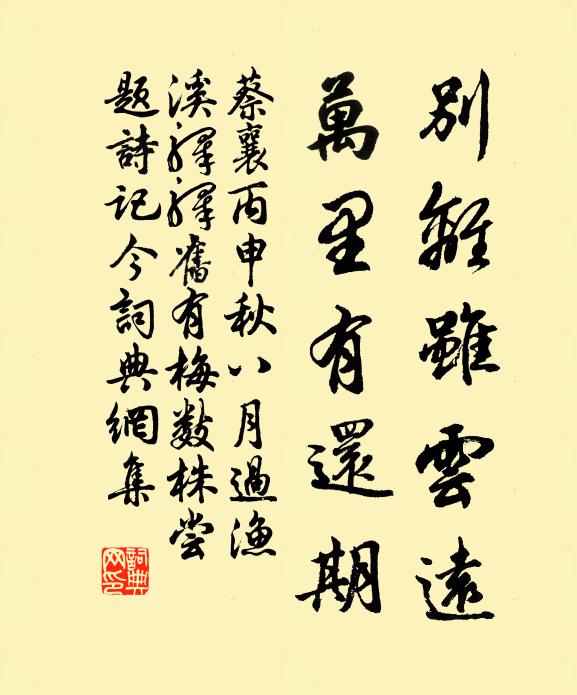 別離雖雲遠
萬里有還期
蔡襄丙申秋八月過漁
溪驛驛舊有梅數株嘗
題詩記今詞典網集
詞典網印